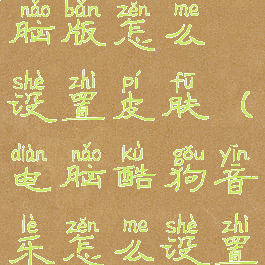 nǎo bǎn zěn me
脑版怎么
shè zhì pí fū
设置皮肤（
diàn nǎo kù gǒu yīn
电脑酷狗音
lè zěn me shè zhì
乐怎么设置